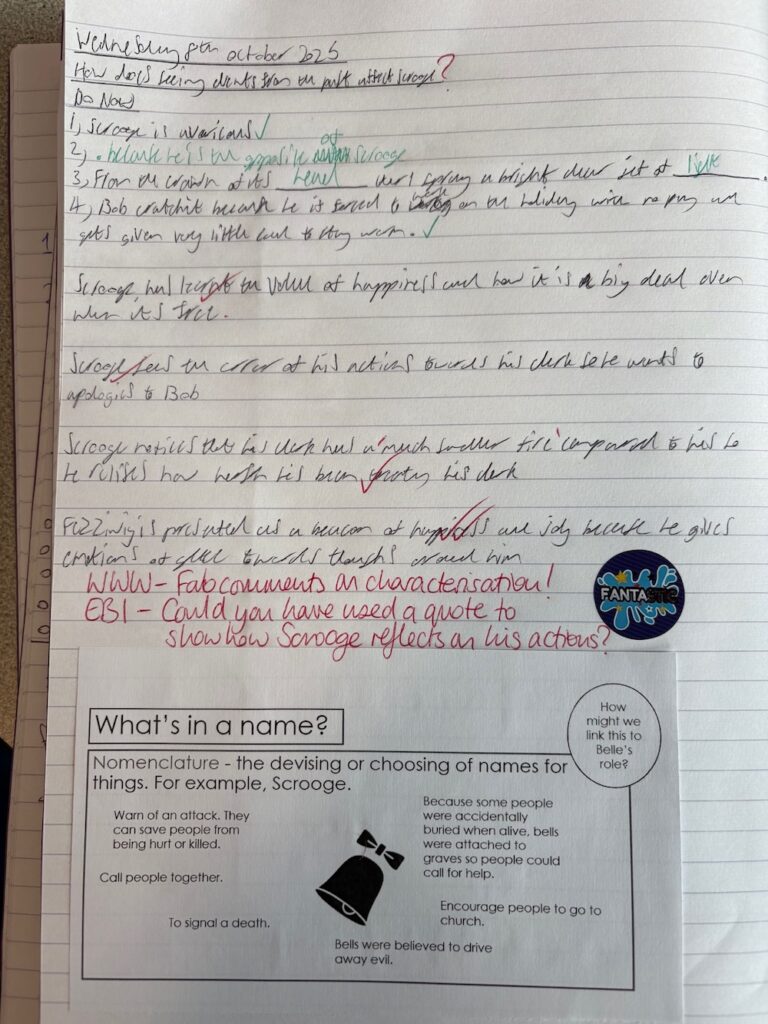 Wednesday 8th October 2025
How does seeing events from the past affect Scrooge?
Do Now
1, Scrooge is avaricous ✓
2, . because he is the opposite of Scrooge
3, From the crown of its head there sprang a bright clear jet of light.
4, Bob cratchit because he is forced to on the holiday with no pay and
gets given very little coal to stay warm. ✓
Scrooge has learnt the value of happiness and how it is a big deal even
when it's free.
Scrooge sees the error of his actions towards his clerk so he wants to
apologies to Bob
Scrooge notices that his clerk has a 'much smaller fire' compared to his so
he relises how harsh his been his clerk
Fizziwig is presented as a beacon of happiness and joy because he gives
emotions of glee towards around him
WWW - Fab comments on characterisation!
EBI - Could you have used a quote to
show how Scrooge reflects on his actions?
FANTASTIC
What's in a name?
How
might we
link this to
Belle's
role?
Nomenclature - the devising or choosing of names for
things. For example, Scrooge.
Warn of an attack. They
can save people from
being hurt or killed.
Because some people
were accidentally
buried when alive, bells
were attached to
graves so people could
call for help.
Call people together.
Encourage people to go to
church.
To signal a death.
Bells were believed to drive
away evil.